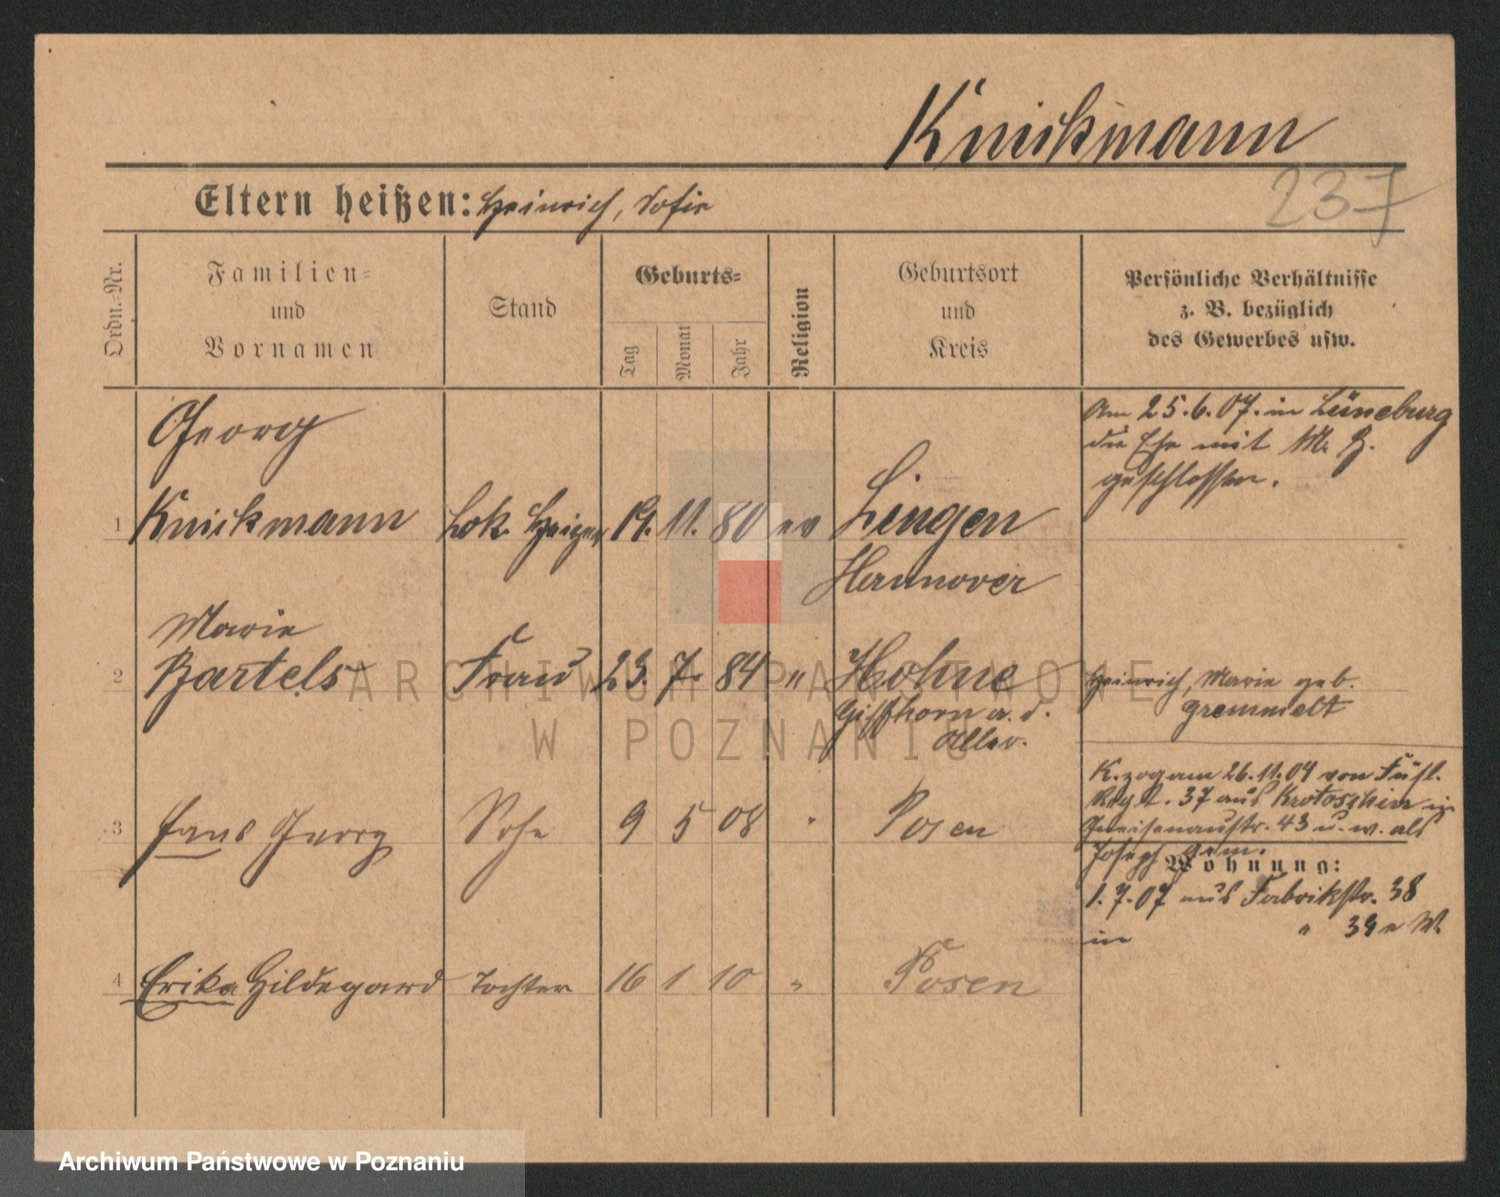 Knickmann
237
Eltern heißen: Heinrich, Sofie
Ordn.-Nr.
Familien-
und
Vornamen
Stand
Geburts-
Tag
Monat
Jahr
Religion
Geburtsort
und
Kreis
Persönliche Verhältnisse
z. B. bezüglich
des Gewerbes usw.
Georg
1 Knickmann Lok. Heizer 19. 11. 80 ev Lingen
Hannover
Am 25.6.07. in Lüneburg
die Ehe mit M. B.
geschlossen.
Marie
2 Bartels Frau 23. 7. 84 " Hohne
Gifhorn a. d.
Aller.
Heinrich, Marie geb.
Gremmelt
3 Hans Georg Sohn 9 5 08 " Posen
K. zog am 26.11.04 von Füsl.
Regt. 37 aus Krotoschin in
Gneisenaustr. 43 u. w. als
Joseph gem.
Wohnung:
1.7.07 aus Fabrikstr. 38
in " 39 W.
4 Erika Hildegard Tochter 16 1 10 " Posen
ARCHIWUM PAŃSTWOWE
W POZNANIU
Archiwum Państwowe w Poznaniu